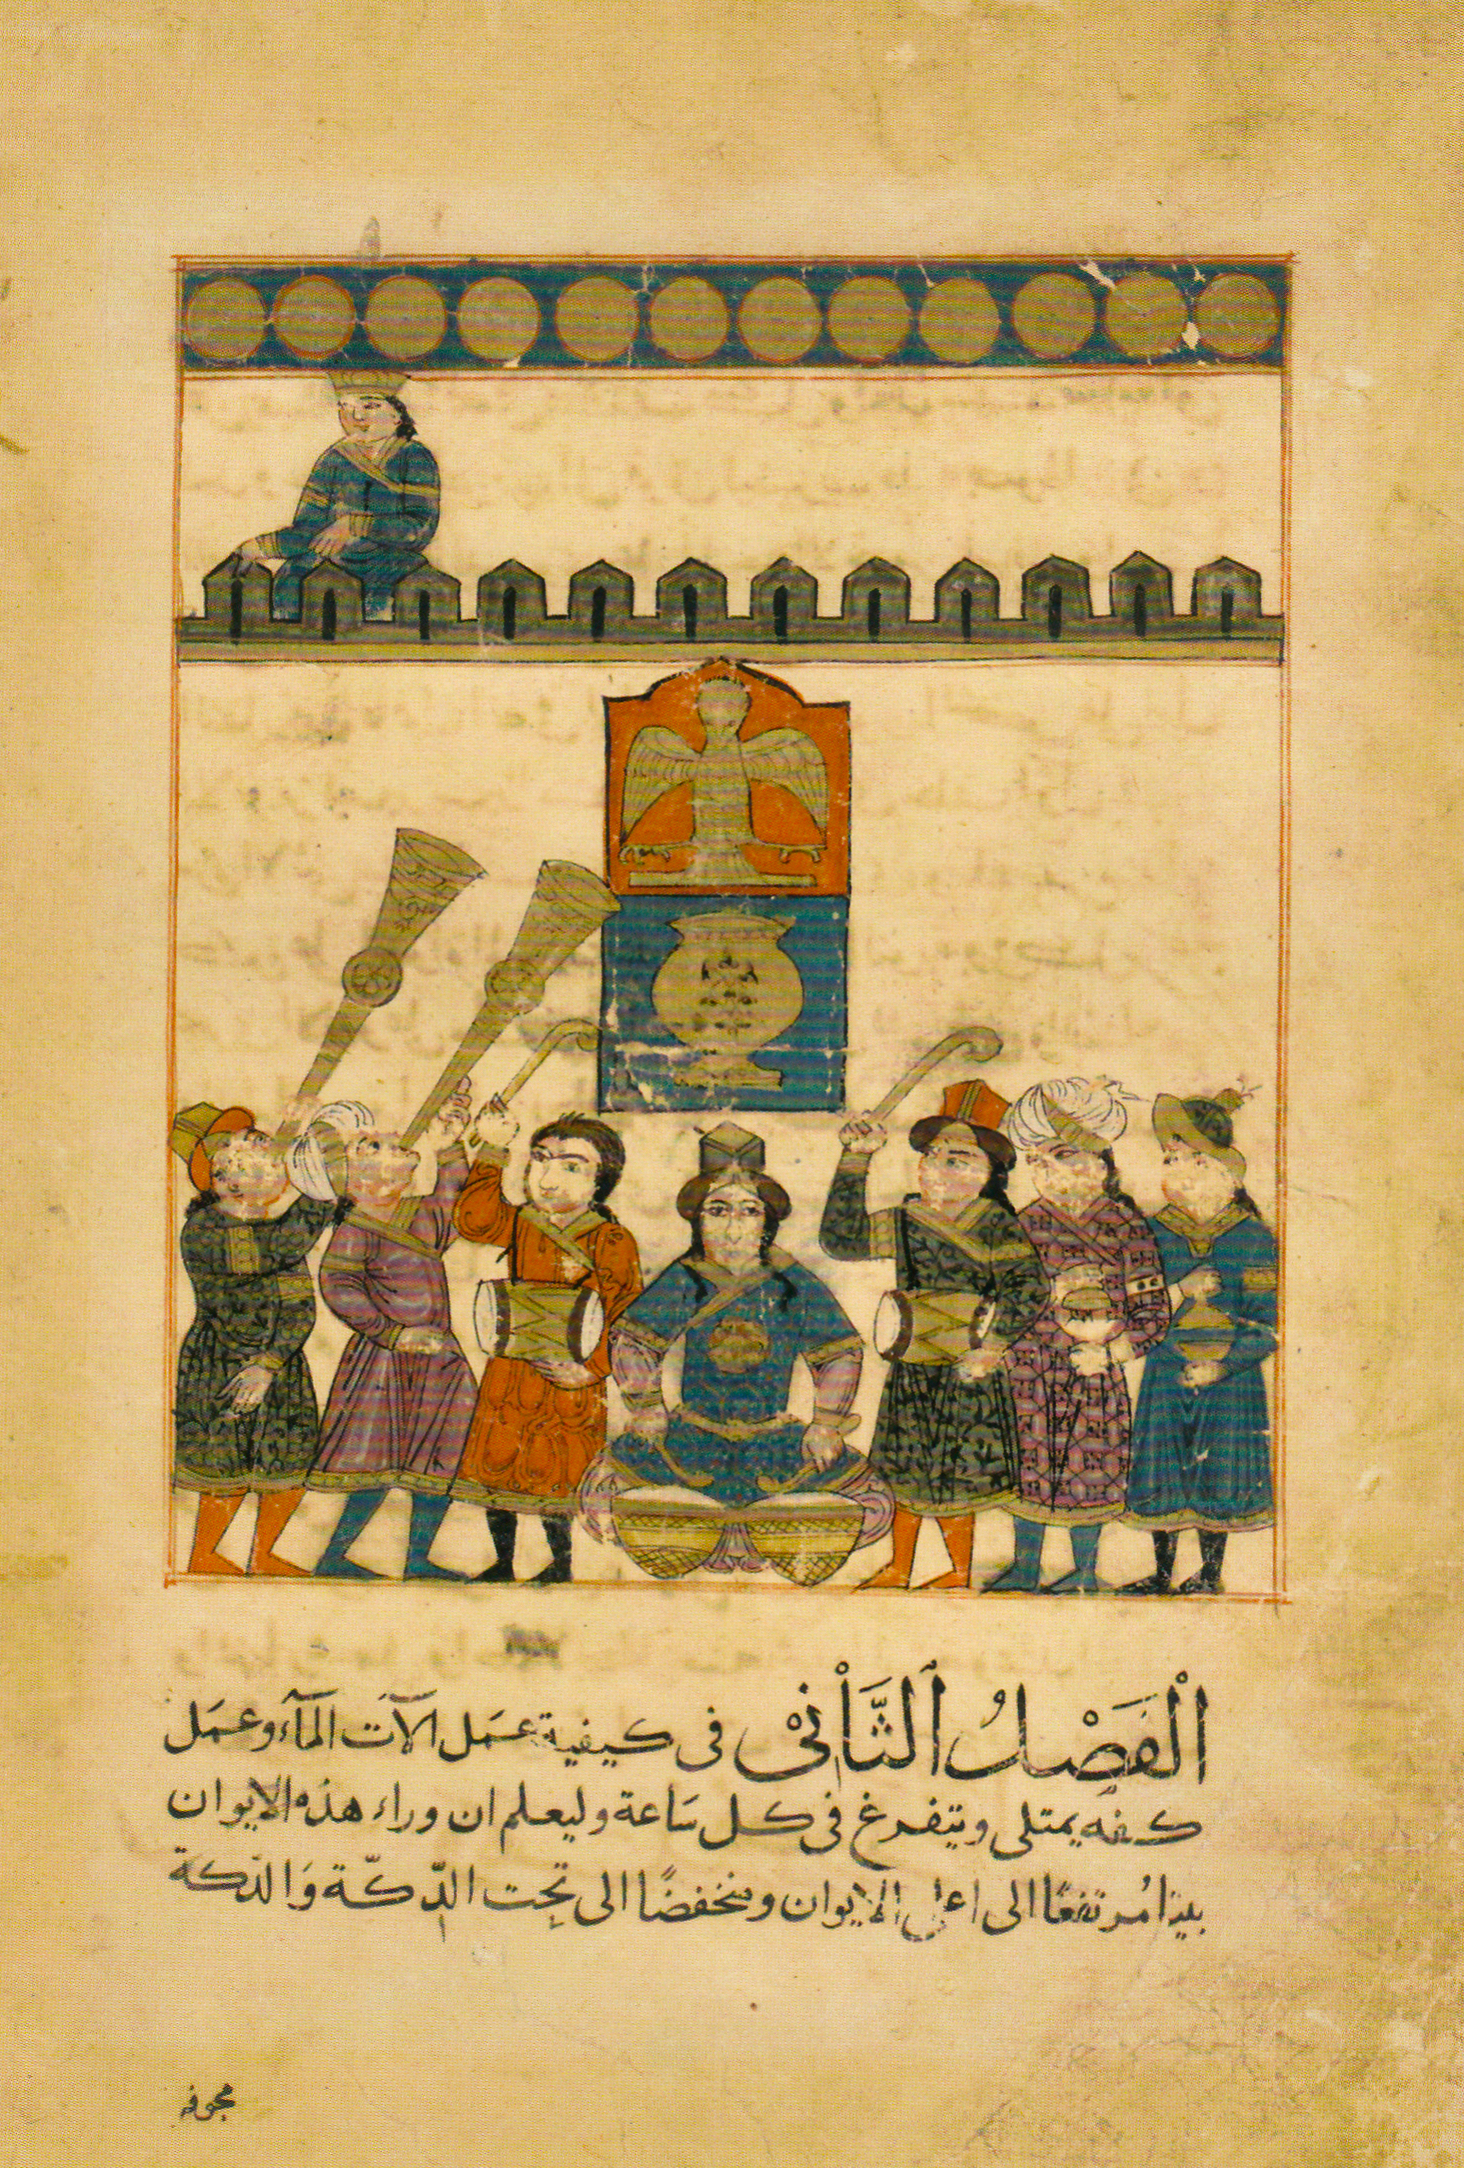 اَلْفَصْلُ الثَّانِيْ في كيفية عمَل الآت المآء وعمَل
كفه يمتلى ويتفرغ في كل سَاعة وليعلم ان وراء هذه الايوان
بيتا مُرتفعًا الى اعلى الايوان ومنخفضًا الى تحِت الدّكّة وَالدكة
مجوفه